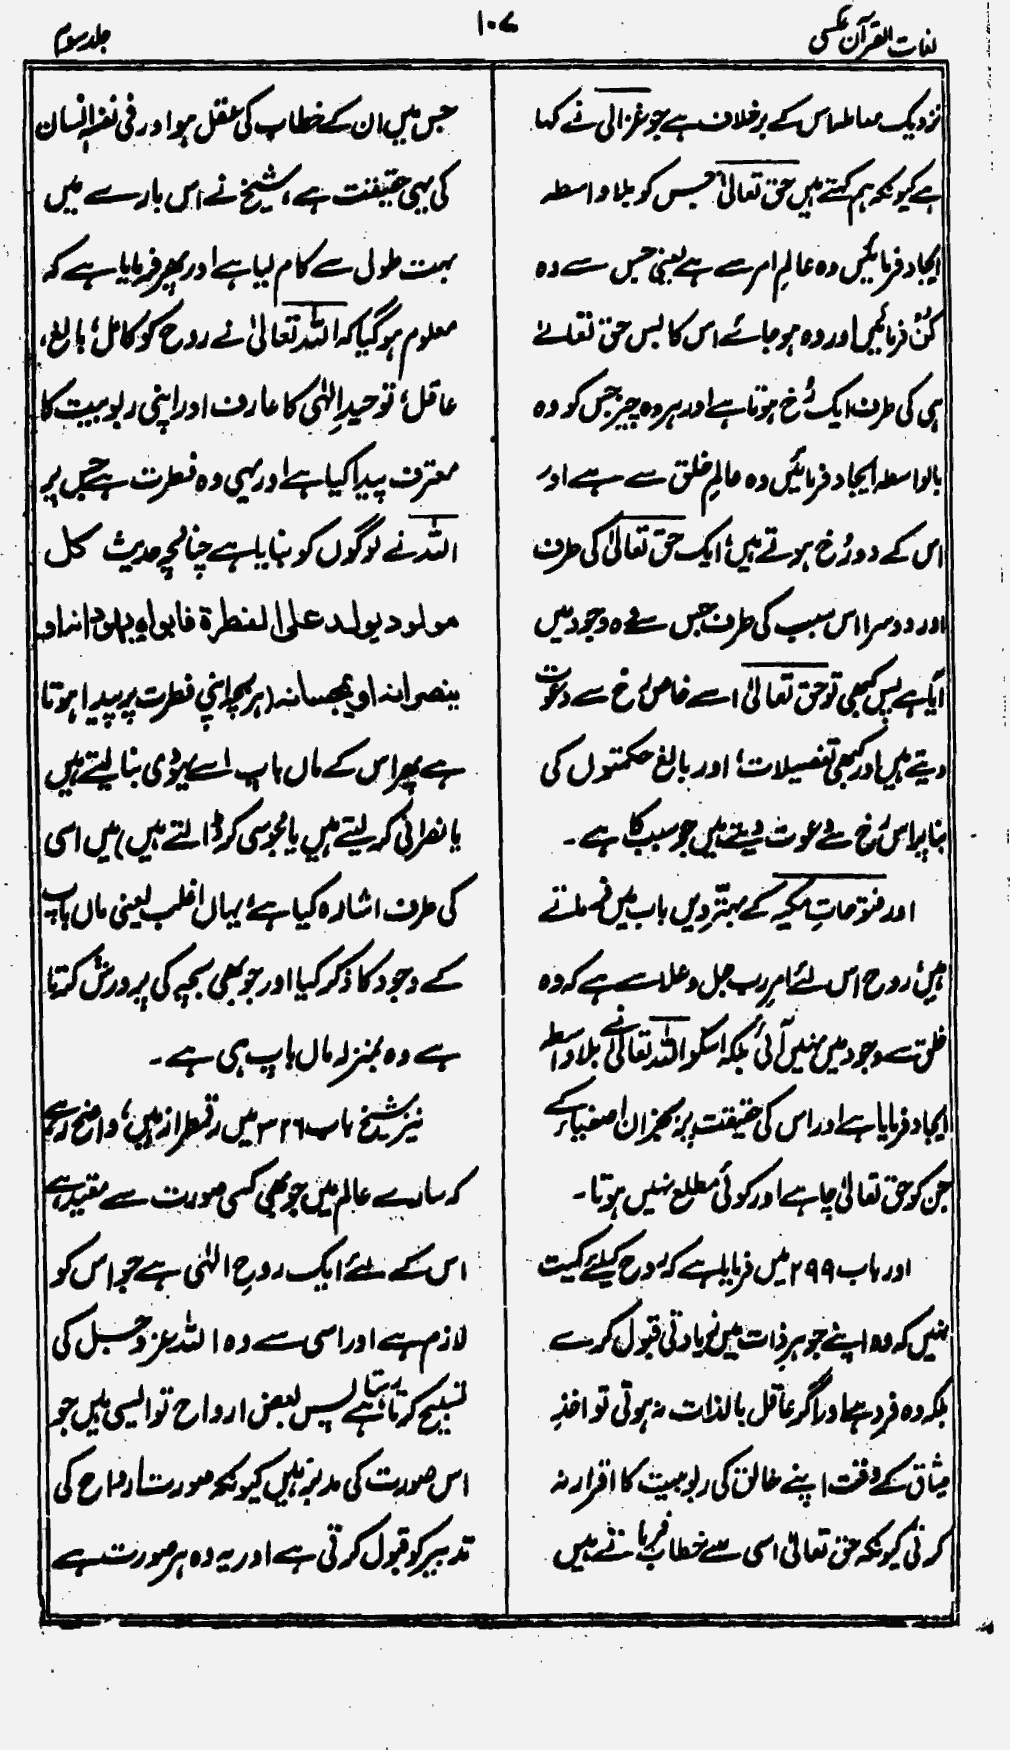 لغات القرآن عکسی
۱۰۷
جلد سوم
نزدیک معاملہ اس کے برخلاف ہے جو غزالی نے کہا
ہے کیونکہ ہم کہتے ہیں حق تعالیٰ جس کو بلا واسطہ
ایجاد فرمائیں وہ عالمِ امر سے ہے یعنی جس سے وہ
کُنْ فرمائیں اور وہ ہو جائے اس کا بس حق تعالے
ہی کی طرف ایک رُخ ہوتا ہے اور ہر وہ چیز جس کو وہ
بالواسطہ ایجاد فرمائیں وہ عالمِ خلق سے ہے اور
اس کے دو رُخ ہوتے ہیں؛ ایک حق تعالیٰ کی طرف
اور دوسرا اس سبب کی طرف جس سے وہ وجود میں
آیا ہے پس کبھی تو حق تعالیٰ اسے خاص رُخ سے دعوت
دیتے ہیں اور کبھی تفصیلات؛ اور بالغ حکمتوں کی
بنا پر اس رُخ سے دعوت دیتے ہیں جو سبب کا ہے۔
اور فتوحاتِ مکیہ کے بہتّرویں باب میں فرماتے
ہیں؛ روح اس لئے امرِ رب جل وعلا سے ہے کہ وہ
خلق سے وجود میں نہیں آئی بلکہ اسکو اللہ تعالیٰ نے بلا واسطہ
ایجاد فرمایا ہے اور اس کی حقیقت پر بجز ان اصفیاء کے
جن کو حق تعالیٰ چاہے اور کوئی مطلع نہیں ہوتا۔
اور باب ۲۹۹ میں فرمایا ہے کہ روح کیلئے کمیت
نہیں کہ وہ اپنے جوہرِ ذات میں زیادتی قبول کرے
بلکہ وہ فرد ہے اور اگر عاقل بالذات نہ ہوتی تو اخذِ
میثاق کے وقت اپنے خالق کی ربوبیت کا اقرار نہ
کرتی کیونکہ حق تعالیٰ اسی سے خطاب فرماتے ہیں
جس میں ان کے خطاب کی عقل ہو اور فی نفسہٖ انسان
کی یہی حقیقت ہے، شیخ نے اس بارے میں
بہت طول سے کام لیا ہے اور پھر فرمایا ہے کہ
معلوم ہو گیا کہ اللہ تعالیٰ نے روح کو کامل؛ بالغ،
عاقل؛ توحیدِ الٰہی کا عارف اور اپنی ربوبیت کا
معترف پیدا کیا ہے اور یہی وہ فطرت ہے جس پر
اللہ نے لوگوں کو بنایا ہے چنانچہ حدیث کل
مولود یولد علی الفطرة فابواہ یہودانہ او
ینصرانہ او یمجسانہ (ہر بچہ اپنی فطرت پر پیدا ہوتا
ہے پھر اس کے ماں باپ اسے یہودی بنا لیتے ہیں
یا نصرانی کر لیتے ہیں یا مجوسی کر ڈالتے ہیں) میں اسی
کی طرف اشارہ کیا ہے؛ یہاں اغلب یعنی ماں باپ
کے وجود کا ذکر کیا اور جو بھی بچہ کی پرورش کرتا
ہے وہ بمنزلہ ماں باپ ہی ہے۔
نیز شیخ باب ۳۲۶ میں رقمطراز ہیں؛ واضح رہے
کہ سارے عالم میں جو بھی کسی صورت سے مقید ہے
اس کے لئے ایک روحِ الٰہی ہے جو اس کو
لازم ہے اور اسی سے وہ اللہ عز وجل کی
تسبیح کرتا رہتا ہے پس بعض ارواح تو ایسی ہیں جو
اس صورت کی مدبر ہیں کیونکہ صورت ارواح کی
تدبیر کو قبول کرتی ہے اور یہ وہ ہر صورت ہے